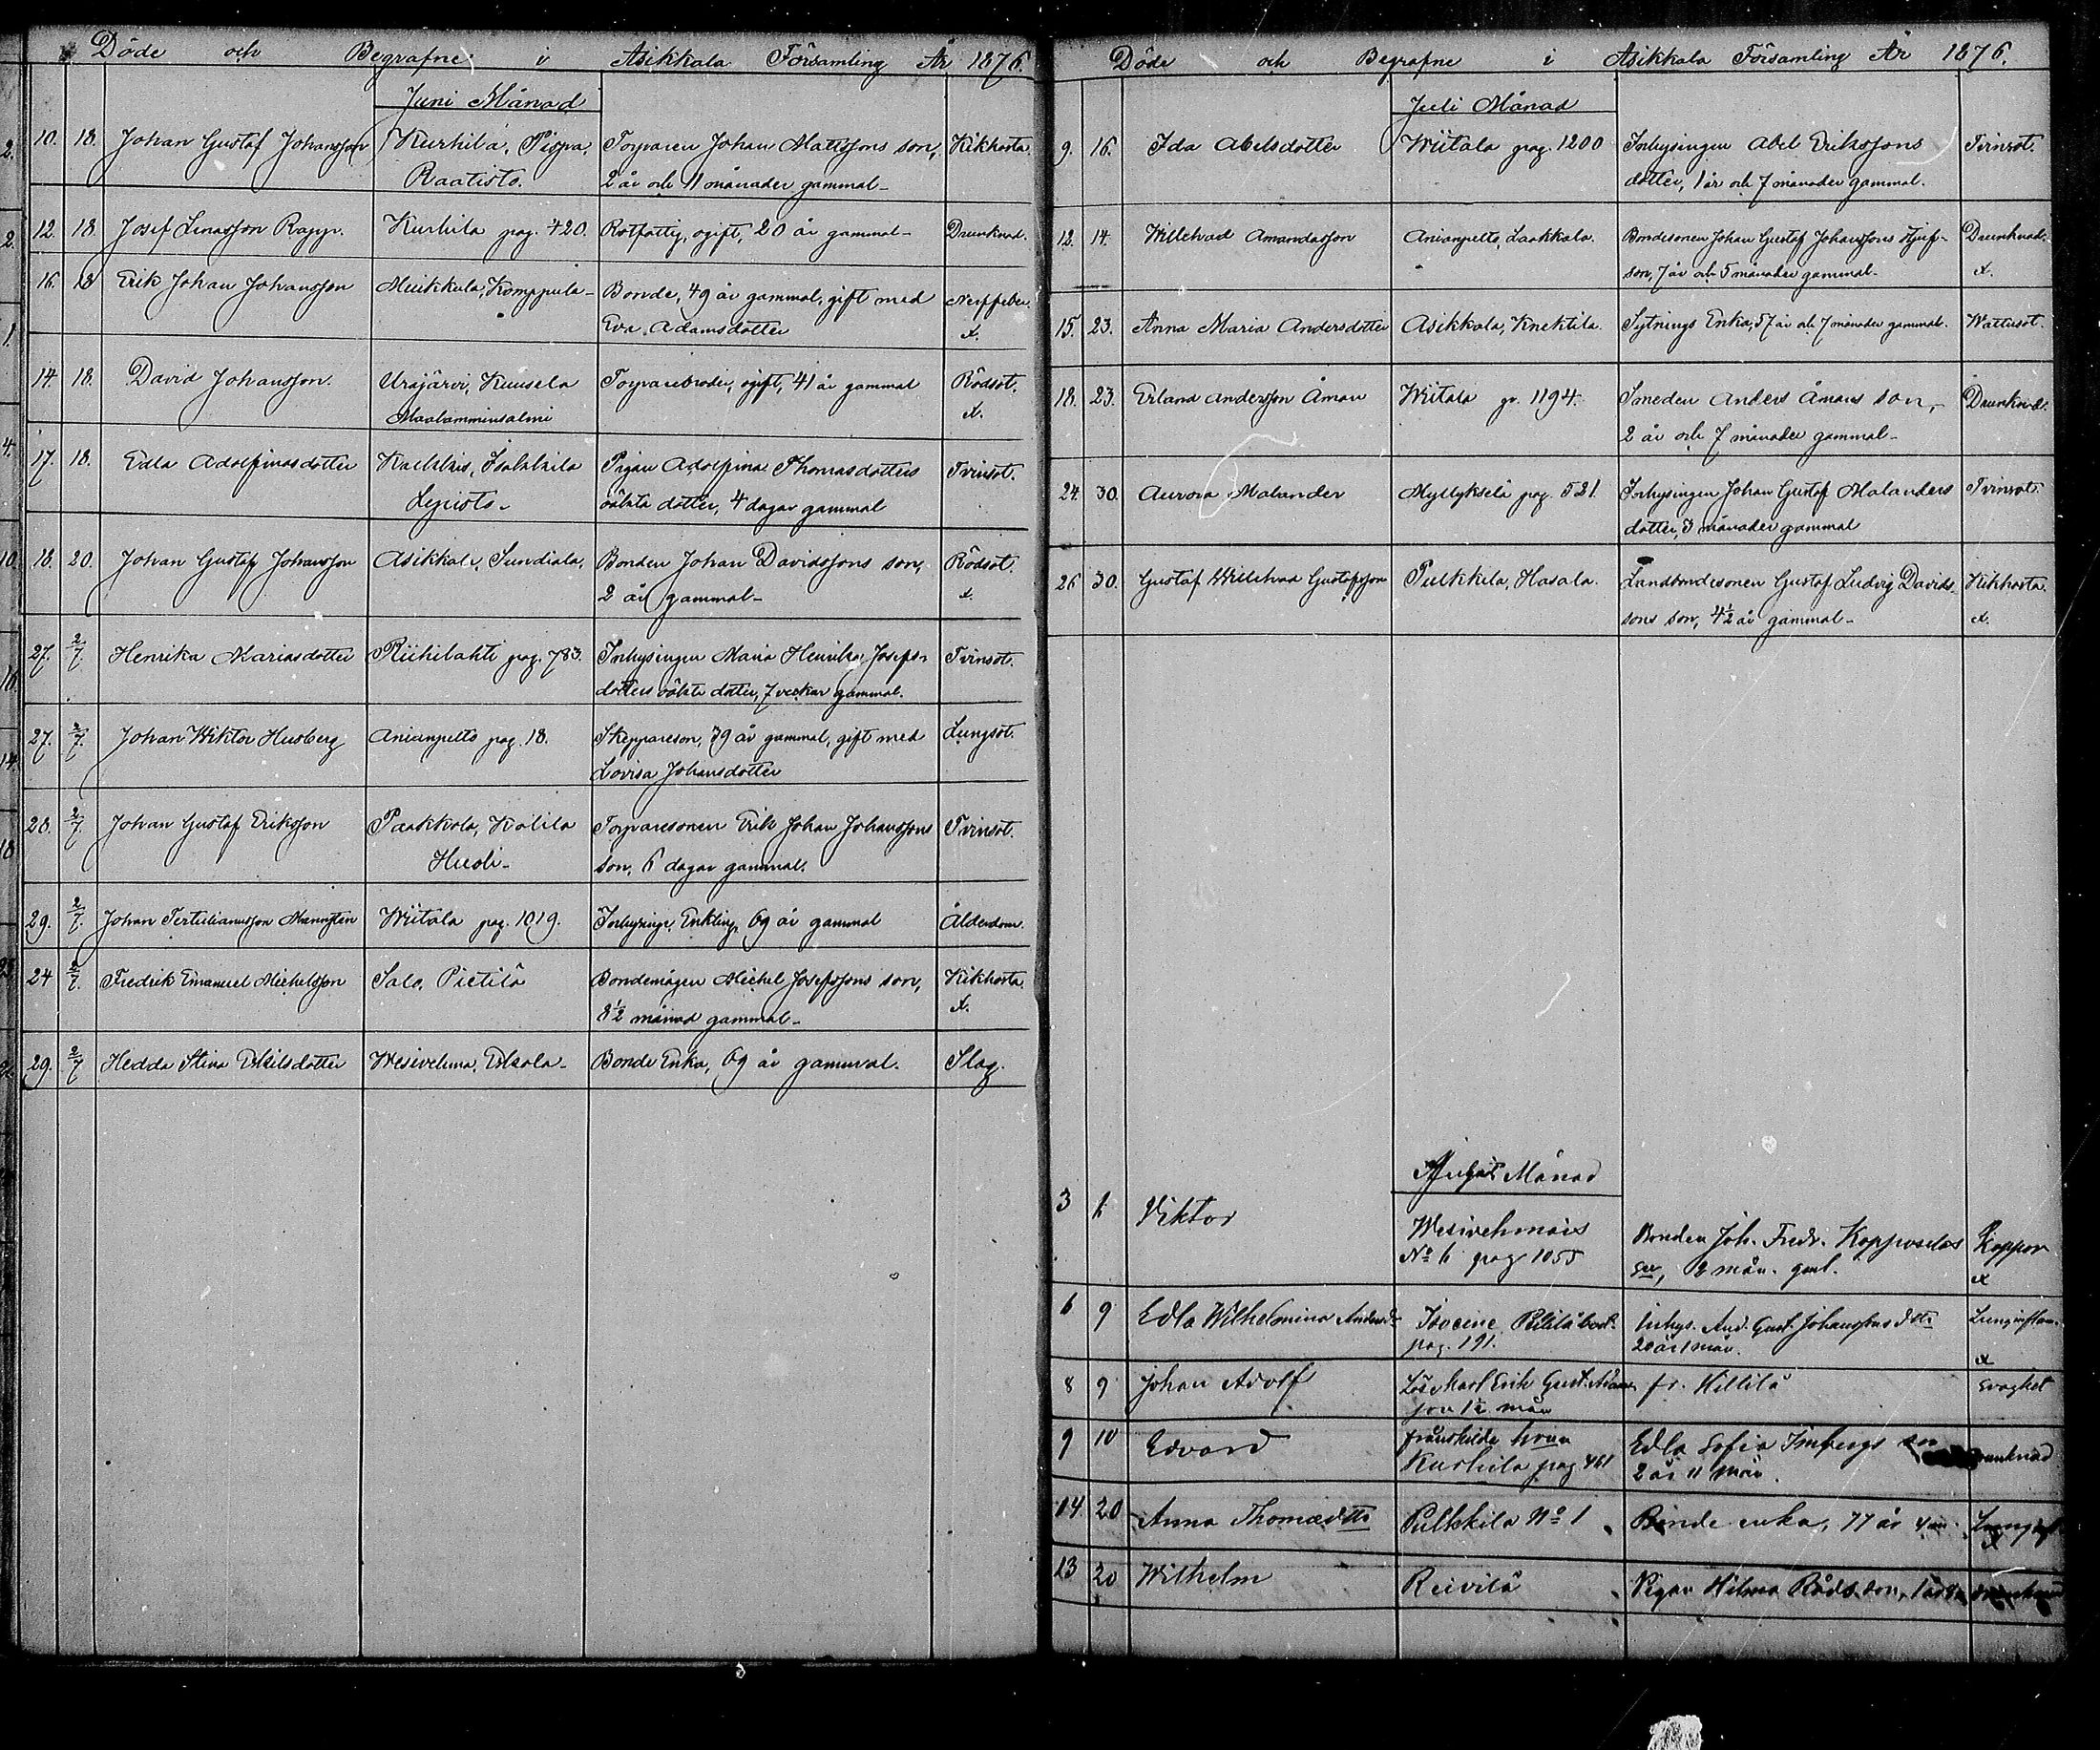 Döde och Begrafne i Asikkala Församling År 1876.
Juni Månad
10. 18. Johan Gustaf Johansson Kurhila, Pispa, Torparen Johan Mattssons son, Kikhosta.
Raatisto. 2 år och 11 månader gammal-
12. 18. Josef Linasson Rapp. Kurhila pag. 420. Rotfattig, ogift, 20 år gammal- Drunknad.
16. 18 Erik Johan Johansson Muikkula, Komppula- Bonde, 49 år gammal, gift med Nerffeber.
Eva Adamsdotter x.
14. 18. David Johansson. Urajärvi, Kuusela Torparebroder, ogift, 41 år gammal Rödsot.
Maalamminsalmi x.
17. 18. Edla Adolfinasdotter Kalkkis, Isokkila Pigan Adolfina Thomasdotters Tvinsot.
oäkta dotter, 4 dagar gammal
18. 20. Johan Gustaf Johansson Asikkala, Sundiala, Bonden Johan Davidssons son, Rödsot.
2 år gammal- x.
27. 2/7. Henrika Mariasdotter Riihilahti pag. 783. Inhysingen Maria Henrika Josefs-
dotters oäkta dotter, 7 veckar gammal. Tvinsot.
27. 2/7. Johan Wiktor Husberg Anianpelto pag. 18. Skeppareson, 79 år gammal, gift med Lungsot.
Lovisa Johansdotter
28. 2/7. Johan Gustaf Eriksson Paakkola, Kalila Torparesonen Erik Johan Johanssons Tvinsot.
Huoli- son, 6 dagar gammal.
29. 2/7. Johan Tertulianusson Wiitala pag. 1019. Inhysinge, Enkling, 69 år gammal Ålderdom.
24 2/7. Fredrik Emanuel Michelsson Salo, Pietilä Bondemågen Michel Josefssons son, Kikhosta
8½ månad gammal- x.
29. 2/7 Hedda Stina Eskilsdotter Wesivehma, Eskola- Bonde Enka, 69 år gammal. Slag.
Döde och Begrafne i Asikkala Församling År 1876.
Juli Månad
9. 16. Ida Abelsdotter Wiitala pag. 1200 Inhysingen Abel Erikssons Tvinsot.
dotter, 1 år och 7 månader gammal.
12. 14. Willehad Amandasson Anianpelto, Laakkola. Bondesonen Johan Gustaf Johanssons styf- Drunknad.
son, 7 år och 5 månader gammal- x.
15. 23. Anna Maria Andersdotter Asikkala, Knektila. Sytnings Enka, 57 år och 7 månader gammal. Wattusot.
18. 23. Erland Andersson Åman Wiitala pr. 1194. Smeden Anders Åmans son,- Drunknad.
2 år och 7 månader gammal-
24. 30. Aurora Malander Myllykselä pag. 521. Inhysingen Johan Gustaf Malanders Tvinsot.
dotter, 3 månader gammal
26 30. Gustaf Willehad Gustafsson Pulkkila, Hasala. Landbondesonen Gustaf Ludvig Davids- Kikhosta.
sons son, 4½ år gammal- x.
Augusti Månad
3 6 Viktor Wesivehmais Bonden Joh. Fredr. Koppor
No 6 pag 1055 2 mån. gml. x
6 9 Edla Wilhelmina Isoeine Inhys. And. Gust. Johanssons dtr Lunginflam.
pag. 191. 20 år 1 mån. x
8 9 Johan Adolf Lösekarl Erik Gust. fr. Hillilä Svaghet
son 1½ mån
9 10 Edvard frånskilda hrun Edla Sofia Imbergs son
Kurhila pag 461 2 år 11 mån.
14. 20 Anna Thomædtr Pulkkila No 1 Bonde enka, 77 år
13 20 Wilhelm Reivilä Pigan Hilma Råds son,